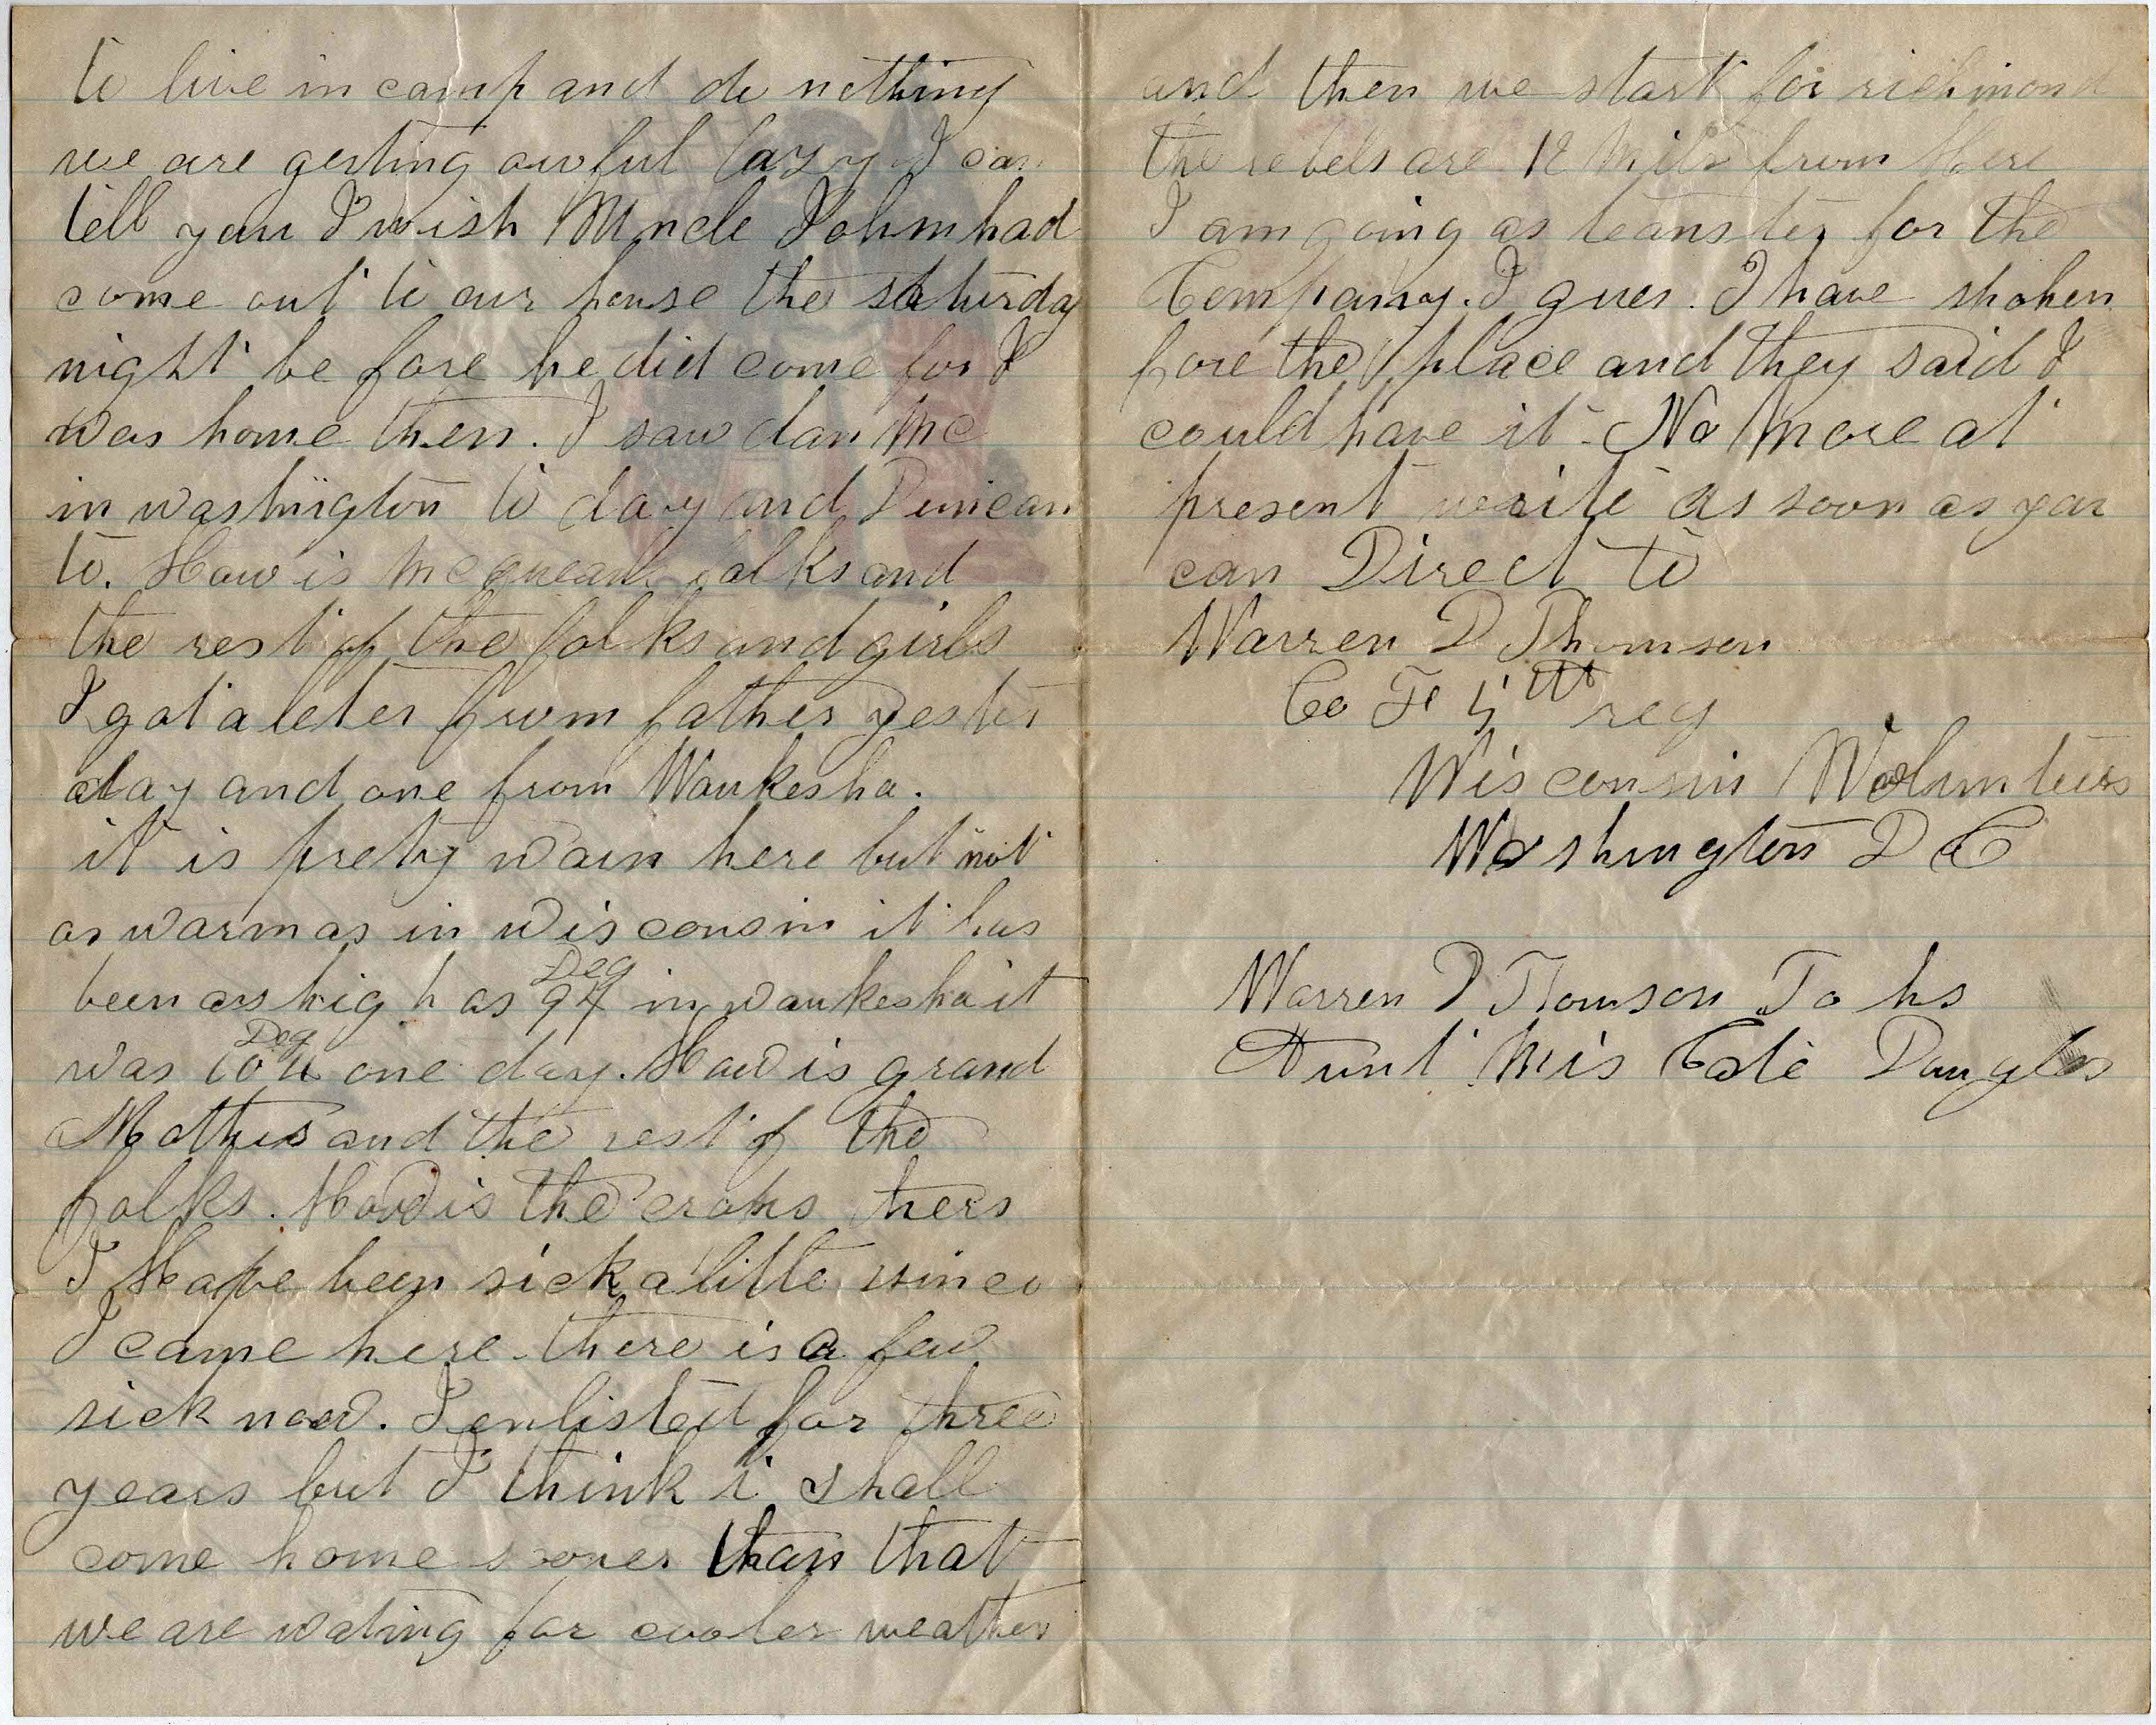 to live in camp and do nothing
we are gesting awful lazy I can
tell you I wish Uncle John had
come out to our house the saturday
night be fore he did come for I
was home then. I saw dan Mc
in washington to day and Duncan
to. How is folks and
the rest of the folks and girls
I got a leter from father yester
day and one from Waukesha.
it is prety warm here but not
as warm as in wisconsin it has
been as high as 94 Deg in waukesha it
was Deg one day. How is grand
Mother and the rest of the
folks. How is the crops thers
I Have been sick a little since
I came here there is a few
sick now. I enlisted for three
years but I think i shall
come home sooner than that
we are wating for cooler weather
and then we start for richmond
the rebels are 12 Miles from Here
I am going as teamster for the
Company. I gues. I have spoken
fore the place and they said I
could have it - No More at
present write as soon as you
can Direct to
Warren D Thomson
Co F 5th reg
Wisconsin Volunteers
Washington D C
Warren D Thomson To his
Aunt Mis Cate Douglas